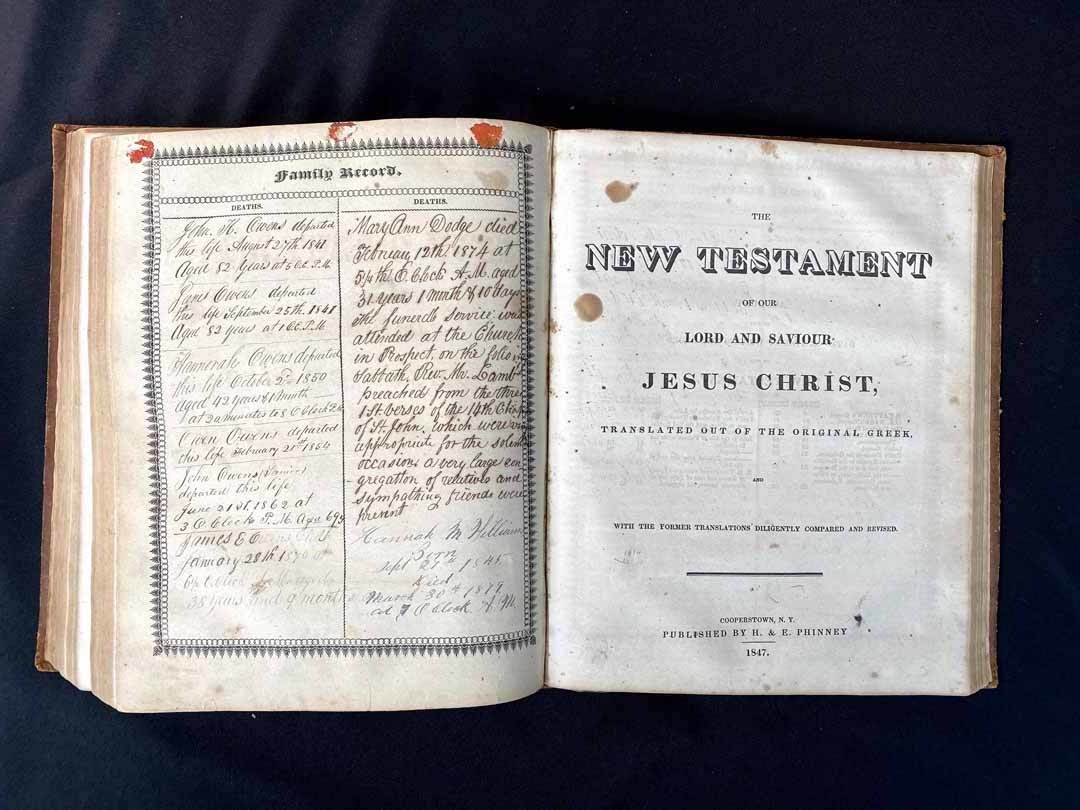 Family Record.
DEATHS.
John. H. Owens departed
this life August 27th 1841
Aged 82 Years at 5 O.C. P.M.
Owens departed
this life September 25th 1841
Aged 82 years at 1 O.C. P.M
Owens departed
this life October 2nd 1850
Aged 42 years & 1 month
at 20 minutes to 8 O Clock
Owen Owens departed
this life February 21st
John Owens
departed this life
June 21st. 1862 at
3 O Clock P. M. Aged 69
James E Owens
January 28th
O Clock
38 years and 9 months
DEATHS.
Mary Ann Dodge died
February 12th 1874 at
5¼th O. Clock A.M. aged
31 Years 1 month & 10 days
the funerdb service was
attended at the Church
in Prospect, on the
Sabbath, Rev. Mr. Lamb
preached from the three
1st verses of the 14th Chap
of St John, which were
appropriate for the solem
occasions a very large con-
gregation of relatives and
sympathing friends were
present
Hannah M William
Born
Sept 1845
Died
March 30th 1877
at 7 O Clock A. M.
THE
NEW TESTAMENT
OF OUR
LORD AND SAVIOUR
JESUS CHRIST,
TRANSLATED OUT OF THE ORIGINAL GREEK,
AND
WITH THE FORMER TRANSLATIONS DILIGENTLY COMPARED AND REVISED.
COOPERSTOWN, N. Y.
PUBLISHED BY H. & E. PHINNEY
1847.